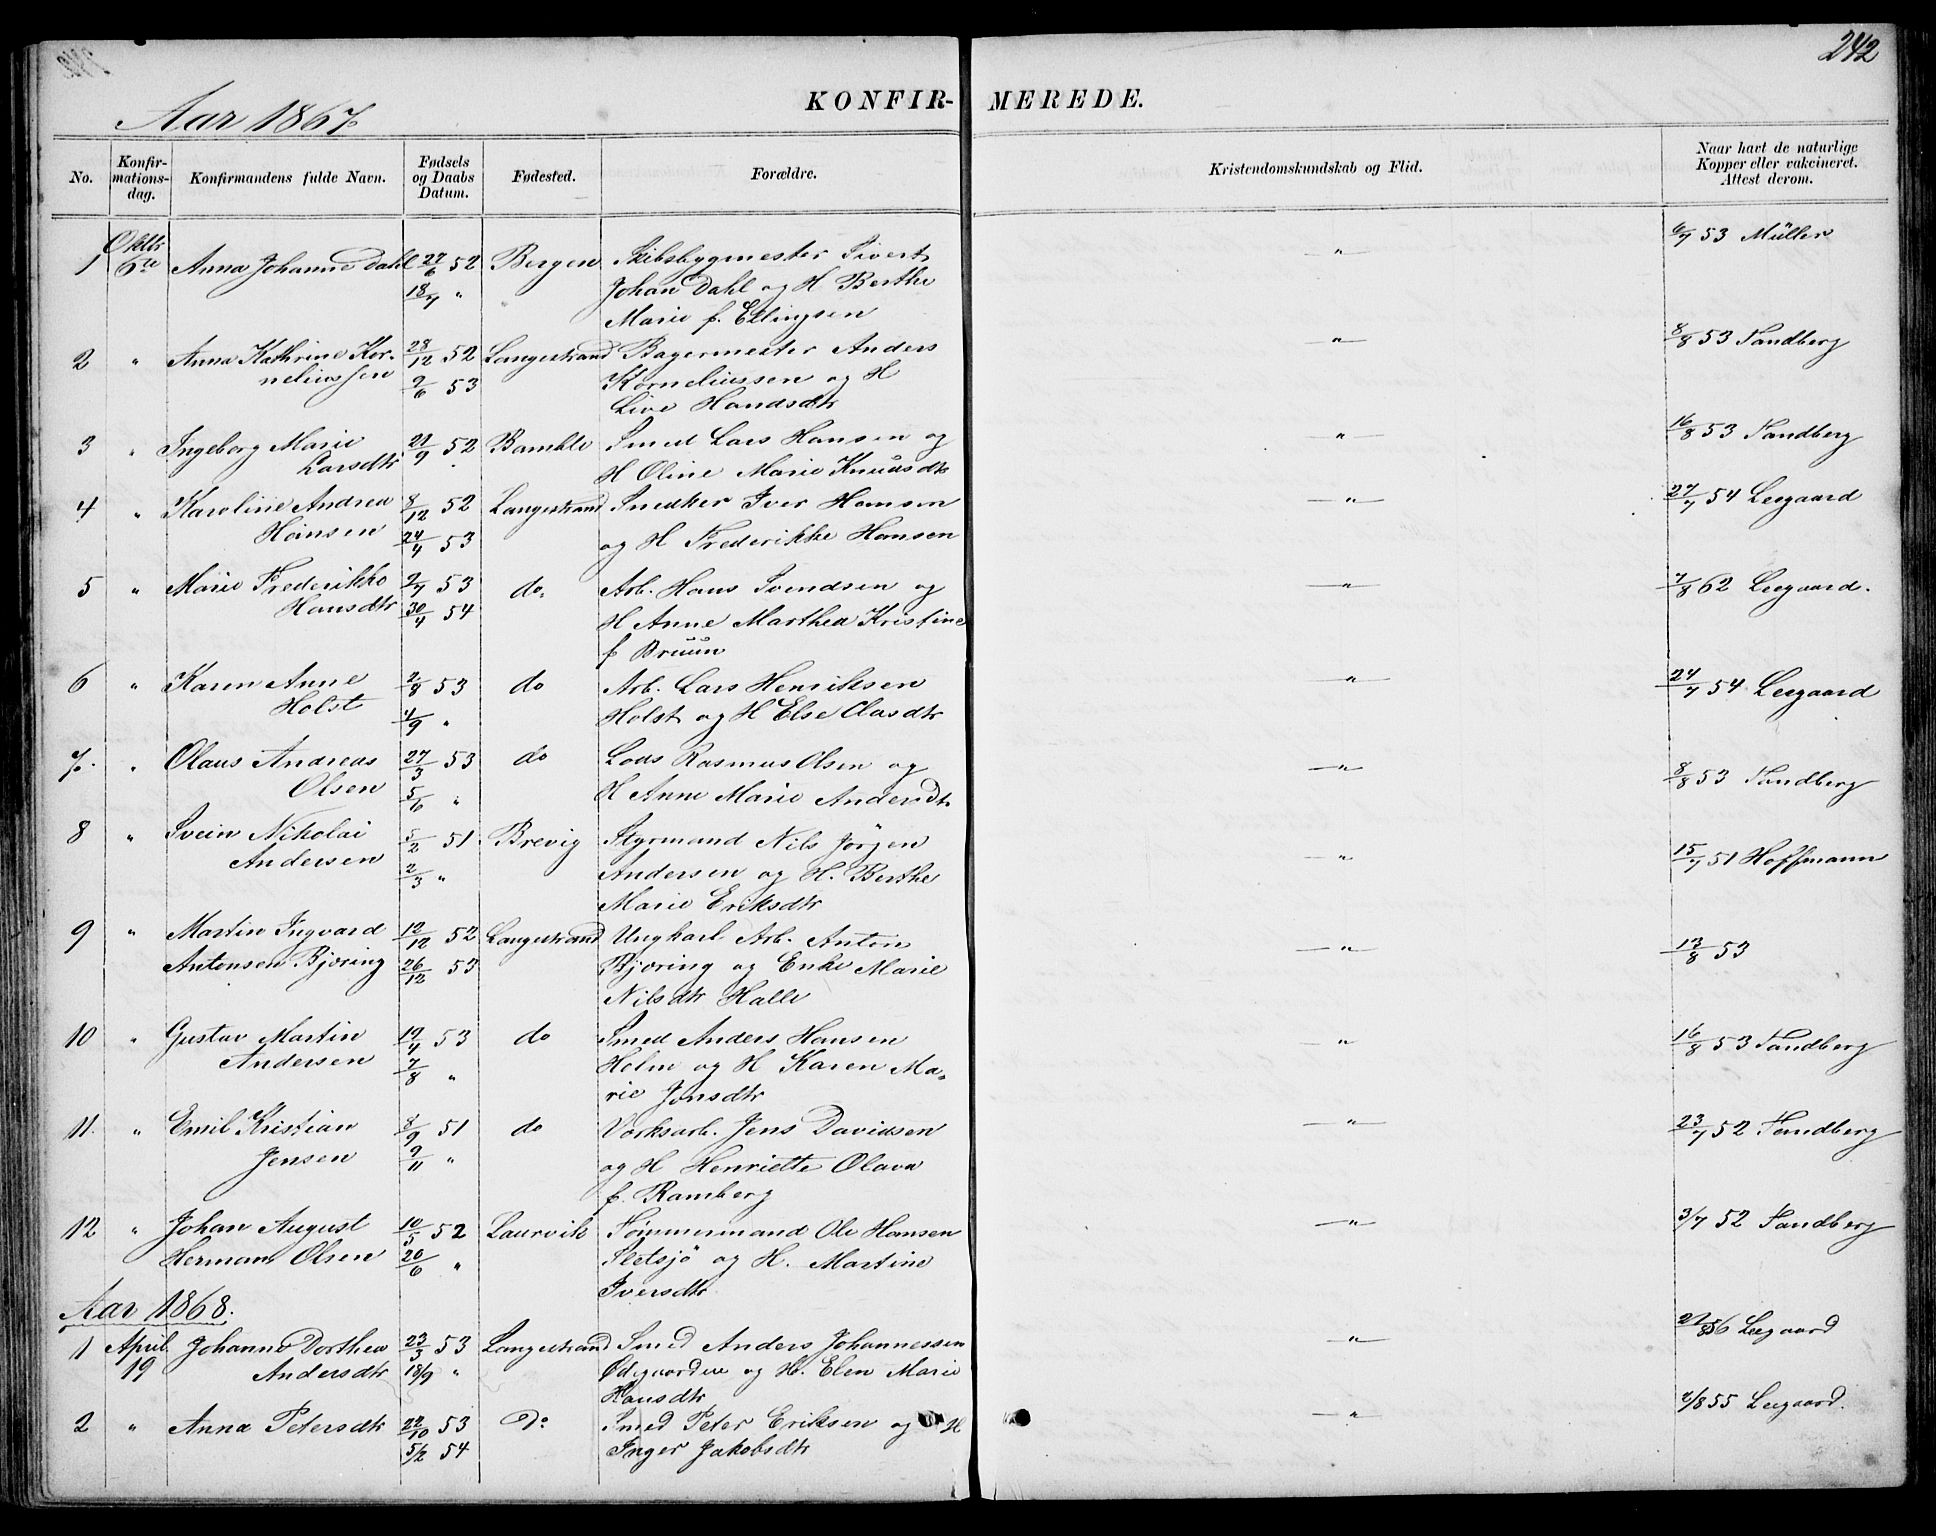 242
Aar 1867
KONFIR- MEREDE.
No. Konfir-mations-dag. Konfirmandens fulde Navn. Fødsels og Daabs Datum. Fødested. Forældre. Kristendomskundskab og Flid. Naar havt de naturlige Kopper eller vakcineret. Attest derom.
Oktbr
1 6te Anna Johanne Dahl 27/6 52 Bergen Skibsbygmester Sivert " 6/7 53 Müller
18/7 " Johan Dahl og H Berthe
Marie f. Ellingsen
2 " Anna Kathrine Kor- 28/12 52 Langestrand Bagermester Anders " 8/8 53 Sandberg
neliussen 2/6 53 Korneliussen og H
Live Handsdtr
3 " Ingeborg Marie 21/9 52 Bamble Smed Lars Hansen og " 16/8 53 Sandberg
Larsdtr H Oline Marie Knudsdtr
4 " Karoline Andrea 8/12 52 Langestrand Snedker Iver Hansen " 27/7 54 Leegaard
Hansen 24/4 53 og H Frederikke Hansen
5 " Marie Frederikke 2/7 53 do. Arb. Hans Svendsen og " 7/8 62 Leegaard.
Hansdtr 30/4 54 H Anne Marthea Kristine
f Bruun
6 " Karen Anne 2/8 53 do Arb. Lars Henriksen " 24/7 54 Leegaard
Holst 4/9 " Holst og H Else Olasdtr
7. " Olaus Andreas 27/3 53 do Lods Rasmus Olsen og " 8/8 53 Sandberg
Olsen 5/6 " H Anne Marie Andersdtr
8 " Svein Nikolai 5/2 51 Brevig Styrmand Nils Jörgen " 15/7 51 Hoffmann
Andersen 2/3 " Andersen og H. Berthe
Marie Eriksdtr
9 " Martin Ingvard 12/12 52 Langestrand Ungkarl Arb. Anton " 13/8 53
Antonsen Bjøring 26/12 53 Bjøring og Enke Marie
Nilsdtr Halle
10 " Gustav Martin 19/4 53 do Smed Anders Hansen " 16/8 53 Sandberg
Andersen 7/8 " Holm og H Karen Ma-
rie Jonsdtr
11. " Emil Kristian 8/9 51 do Verksarb. Jens Davidsen " 23/7 52 Sandberg
Jensen 9/11 " og H Henriette Olava
f. Ramberg
12 " Johan August 10/5 52 Laurvik Tömmermand Ole Hansen " 3/7 52 Sandberg
Herman Olsen 20/6 " Sletsjö og H. Martine
Iversdtr
Aar 1868.
1 April Johanne Dorthea 23/3 53 Langestrand Smed Anders Johannessen " 56 Leegaard
19 Andersdtr 18/9 " Ødegaarden og H. Elen Marie
Hansdtr
2 " Anna Petersdtr 22/10 53 Do Smed Peter Eriksen og H " 2/8 55 Leegaard.
5/2 54 Inger Jakobsdtr